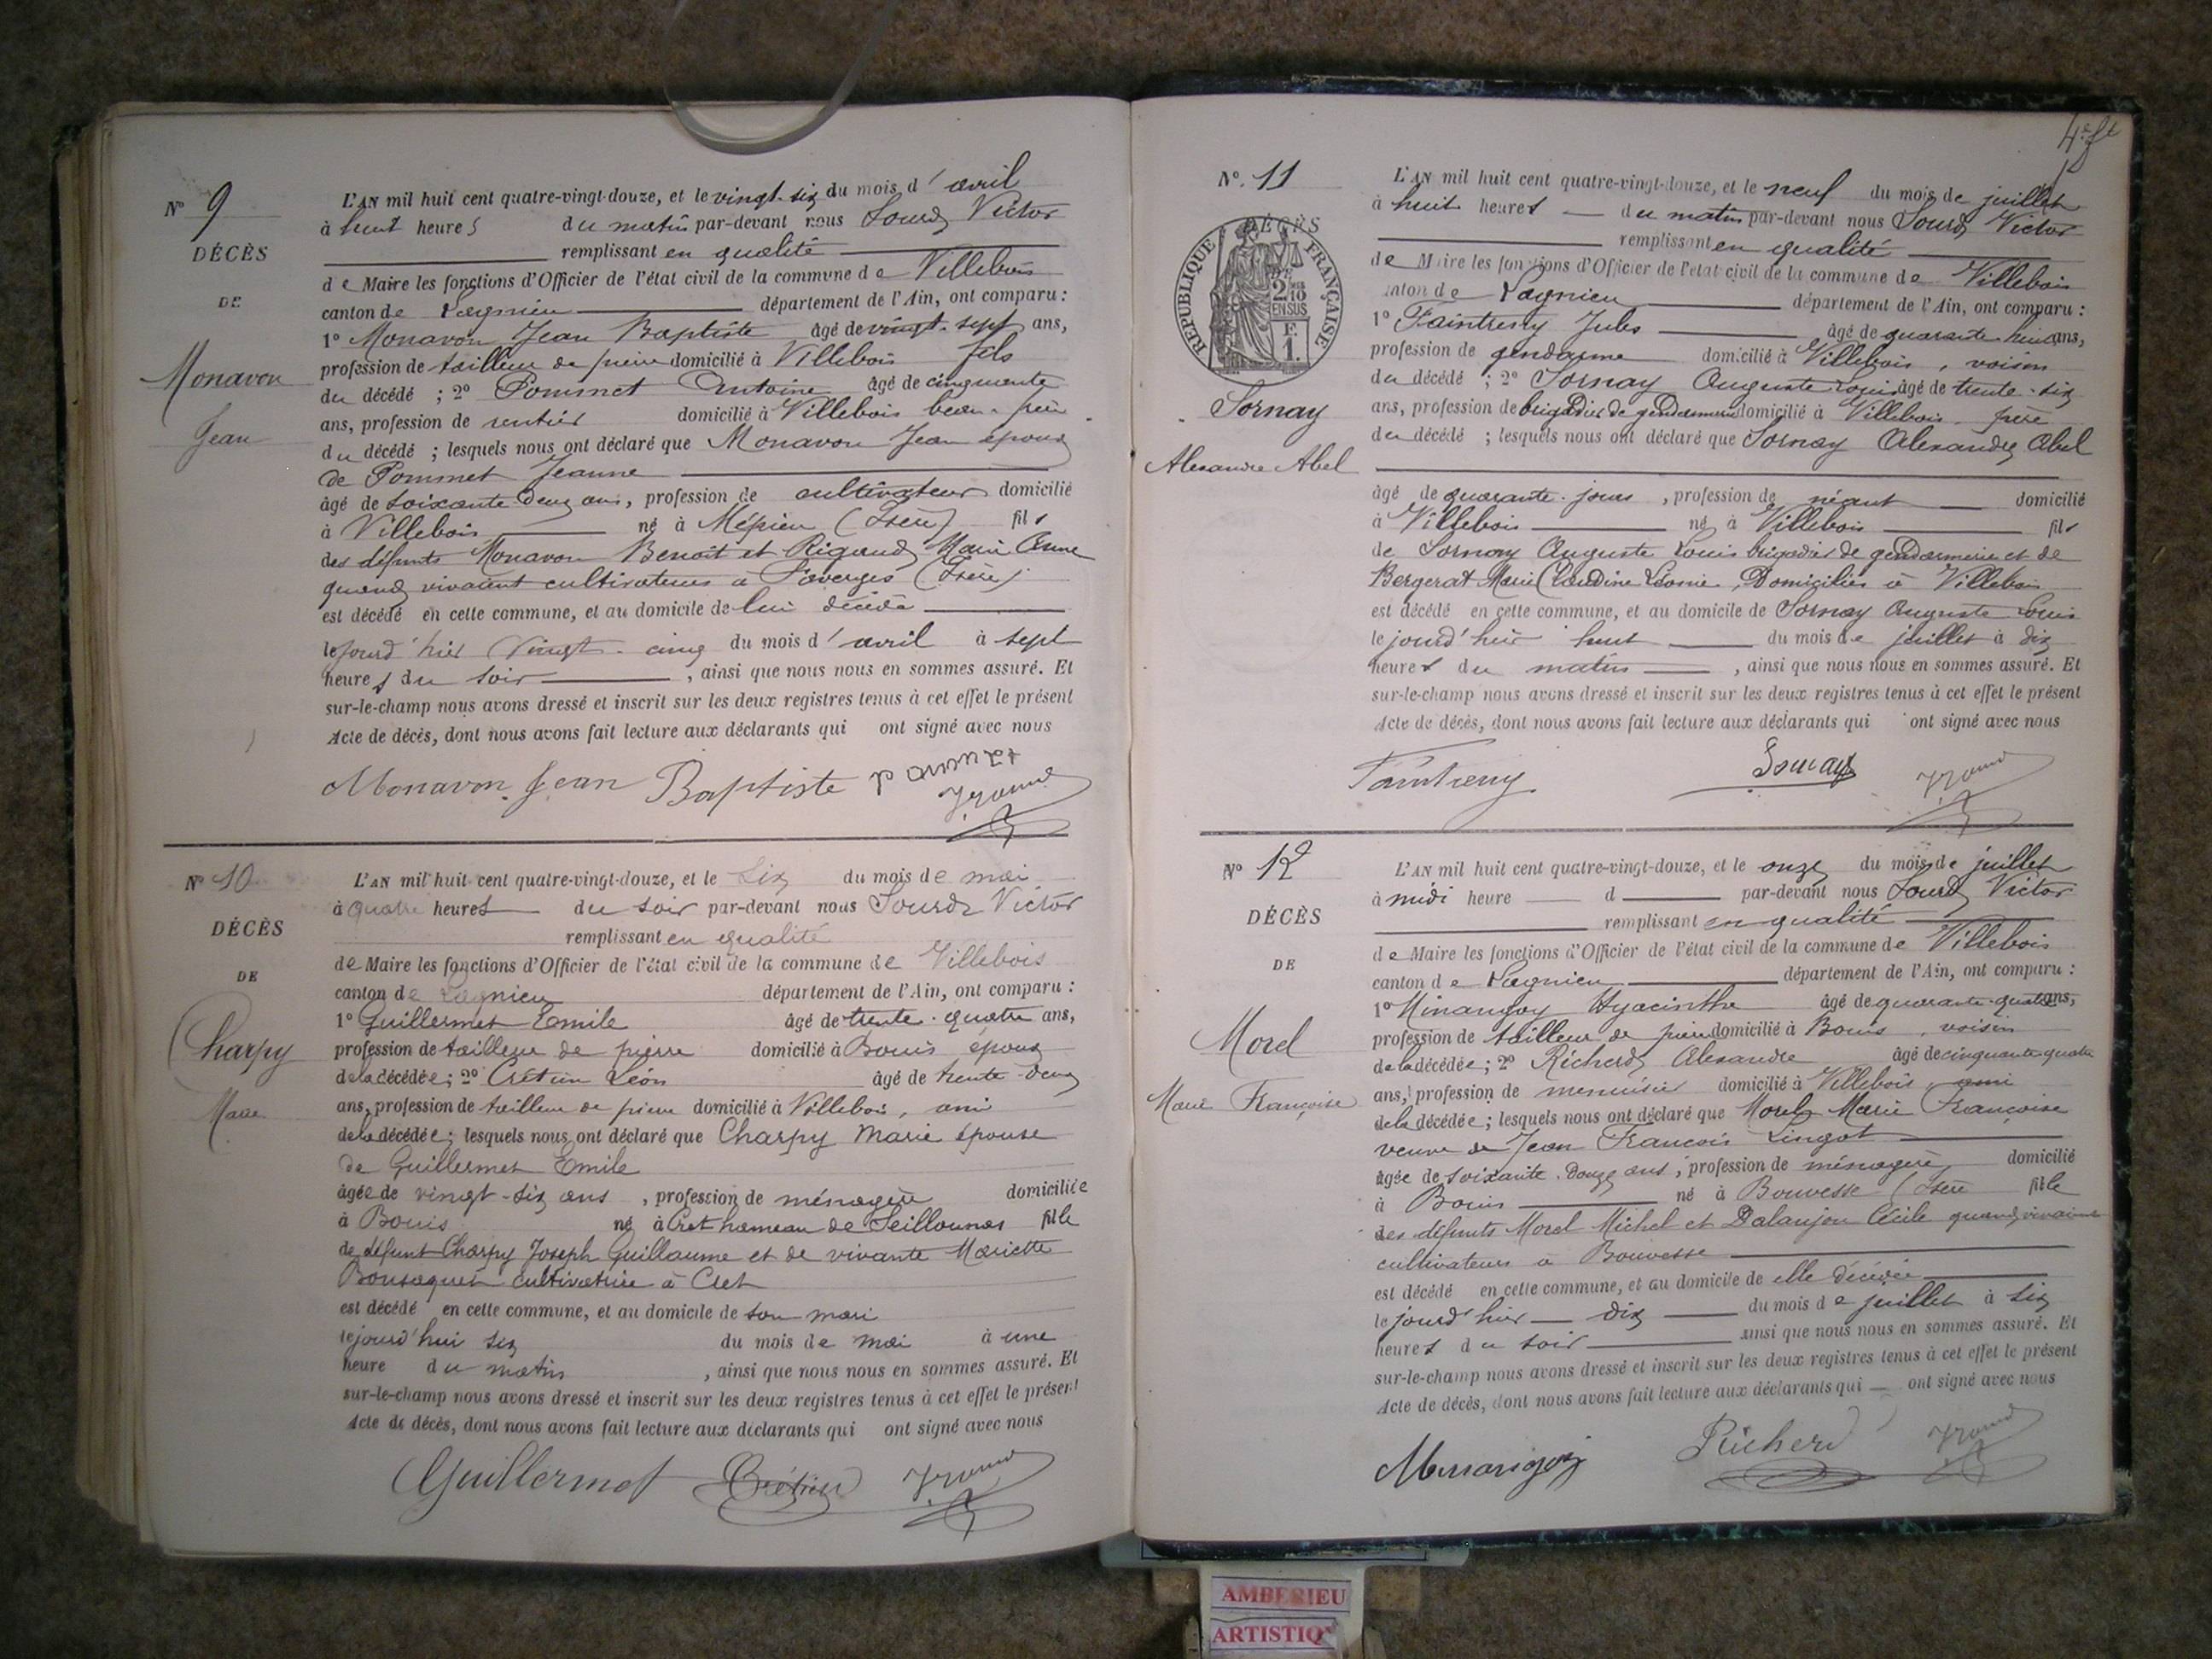 Nº 9
DÉCÈS
DE
Monavon
Jean
L'AN mil huit cent quatre-vingt-douze, et le vingt-six du mois d'avril
à huit heures du matin par-devant nous Sourd Victor
remplissant en qualité
de Maire les fonctions d'Officier de l'état civil de la commune de Villebois
canton de Lagnieu département de l'Ain, ont comparu :
1º Monavon Jean Baptiste âgé de vingt-sept ans,
profession de tailleur de pierre domicilié à Villebois fils
du décédé ; 2º Pommet Antoine âgé de cinquante
ans, profession de rentier domicilié à Villebois beau-frère
du décédé ; lesquels nous ont déclaré que Monavon Jean époux
de Pommet Jeanne
âgé de soixante deux ans, profession de cultivateur domicilié
à Villebois né à Mépieu (Isère) fils
des défunts Monavon Benoît et Rigaud Marie Anne
quand vivaient cultivateurs à (Isère)
est décédé en cette commune, et au domicile de lui décédé
le jourd'hier vingt-cinq du mois d'avril à sept
heures du soir , ainsi que nous nous en sommes assuré. Et
sur-le-champ nous avons dressé et inscrit sur les deux registres tenus à cet effet le présent
Acte de décès, dont nous avons fait lecture aux déclarants qui ont signé avec nous
Monavon Jean Baptiste pommet
Nº 10
DÉCÈS
DE
Charpy
Marie
L'AN mil huit cent quatre-vingt-douze, et le six du mois de mai
à quatre heures du soir par-devant nous Sourd Victor
remplissant en qualité
de Maire les fonctions d'Officier de l'état civil de la commune de Villebois
canton de Lagnieu département de l'Ain, ont comparu :
1º Guillermet Emile âgé de trente-quatre ans,
profession de tailleur de pierre domicilié à Bouis époux
de la décédée ; 2º Crétin Léon âgé de trente-deux
ans, profession de tailleur de pierre domicilié à Villebois, ami
de la décédée ; lesquels nous ont déclaré que Charpy Marie épouse
de Guillermet Emile
âgée de vingt-six ans , profession de ménagère domiciliée
à Bouis né à Cret hameau de Seillonnas fille
de défunt Charpy Joseph Guillaume et de vivante Mariette
Bousaquet cultivatrice à Cret
est décédé en cette commune, et au domicile de son mari
le jourd'hui six du mois de mai à une
heure du matin , ainsi que nous nous en sommes assuré. Et
sur-le-champ nous avons dressé et inscrit sur les deux registres tenus à cet effet le présent
Acte de décès, dont nous avons fait lecture aux déclarants qui ont signé avec nous
Guillermet Crétin
4e ft
Nº 11
DÉCÈS
RÉPUBLIQUE FRANÇAISE
2 10 EN SUS
F. 1.
Sornay
Alexandre Abel
L'AN mil huit cent quatre-vingt-douze, et le neuf du mois de juillet
à huit heures du matin par-devant nous Sourd Victor
remplissant en qualité
de Maire les fonctions d'Officier de l'état civil de la commune de Villebois
canton de Lagnieu département de l'Ain, ont comparu :
1º Faintreny Jules âgé de quarante huit ans,
profession de gendarme domicilié à Villebois, voisin
du décédé ; 2º Sornay Auguste Louis âgé de trente-six
ans, profession de brigadier de gendarmerie domicilié à Villebois père
du décédé ; lesquels nous ont déclaré que Sornay Alexandre Abel
âgé de quarante jours , profession de néant domicilié
à Villebois né à Villebois fils
de Sornay Auguste Louis brigadier de gendarmerie et de
Bergerat Marie Claudine Léonie, Domiciliés à Villebois
est décédé en cette commune, et au domicile de Sornay Auguste Louis
le jourd'hier huit du mois de juillet à dix
heures du matin , ainsi que nous nous en sommes assuré. Et
sur-le-champ nous avons dressé et inscrit sur les deux registres tenus à cet effet le présent
Acte de décès, dont nous avons fait lecture aux déclarants qui ont signé avec nous
Faintreny Sornay
Nº 12
DÉCÈS
DE
Morel
Marie Françoise
L'AN mil huit cent quatre-vingt-douze, et le onze du mois de juillet
à midi heure d par-devant nous Sourd Victor
remplissant en qualité
de Maire les fonctions d'Officier de l'état civil de la commune de Villebois
canton de Lagnieu département de l'Ain, ont comparu :
1º Minangoy Hyacinthe âgé de quarante-quatre ans,
profession de tailleur de pierre domicilié à Bouis, voisin
de la décédée ; 2º Richerd Alexandre âgé de cinquante-quatre
ans, profession de menuisier domicilié à Villebois, ami
de la décédée ; lesquels nous ont déclaré que Morel Marie Françoise
veuve de Jean François Lingot
âgée de soixante-douze ans, profession de ménagère domicilié
à Bouis né à Bouvesse (Isère fille
des défunts Morel Michel et Dalanjon Cécile quand vivaient
cultivateurs à Bouvesse
est décédé en cette commune, et au domicile de elle décédée
le jourd'hier dix du mois de juillet à six
heures du soir ainsi que nous nous en sommes assuré. Et
sur-le-champ nous avons dressé et inscrit sur les deux registres tenus à cet effet le présent
Acte de décès, dont nous avons fait lecture aux déclarants qui ont signé avec nous
Minangoy Richerd
AMBERIEU
ARTISTIQ